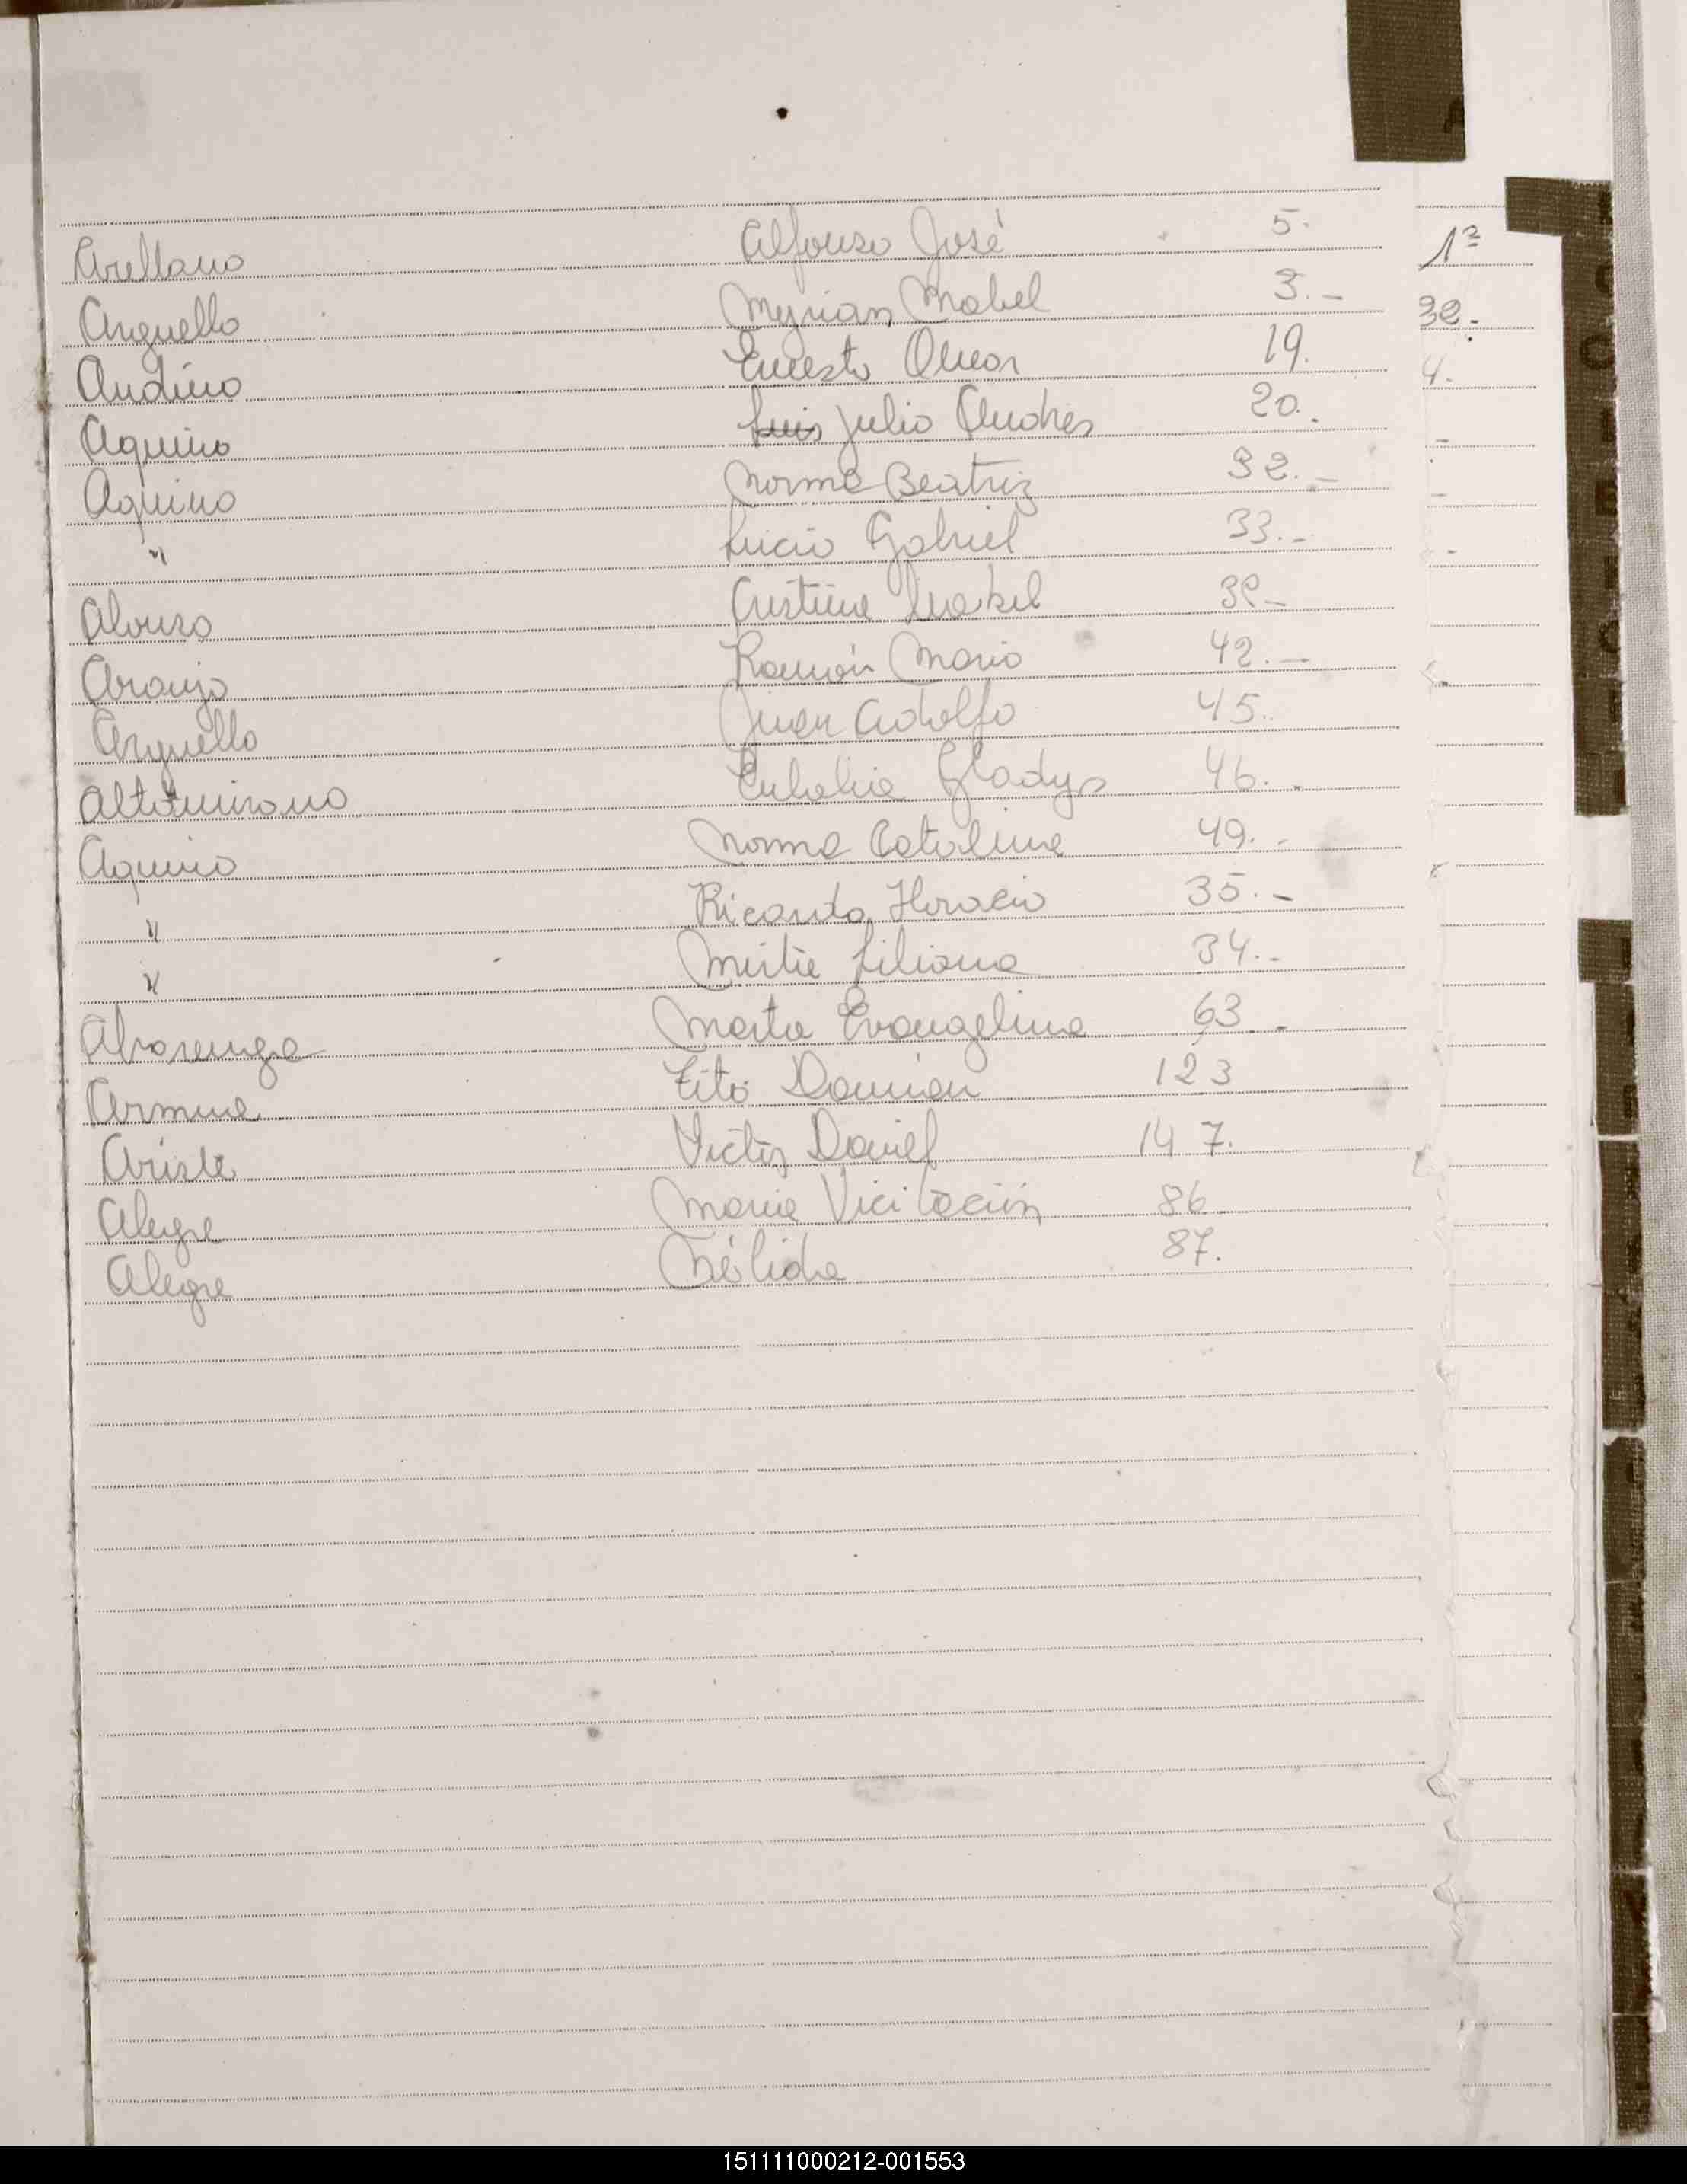 Arellano Alfonso José 5.
Arguello Myrian Mabel 3.-
Andino Ernesto Omar 19.
Aquino Luis Julio Andres 20.
Aquino Norma Beatriz 32.-
" Lucio Gabriel 33.-
Alonso Cristina Isabel 32-
Araujo Ramón Mario 42.-
Arguello Juan Adolfo 45.
Altamirano Eulalia Gladys 46.-
Aquino Norma Catalina 49.-
" Ricardo Horacio 35.-
" Mirtie Liliana 34.-
Alvarenga Marta Evangelina 63.-
Armua Tito Damian 123
Aristi Victor Daniel 147.
Alegre Maria Vicitación 86.
Alegre Nélida 87.
32.-
4.
151111000212-001553